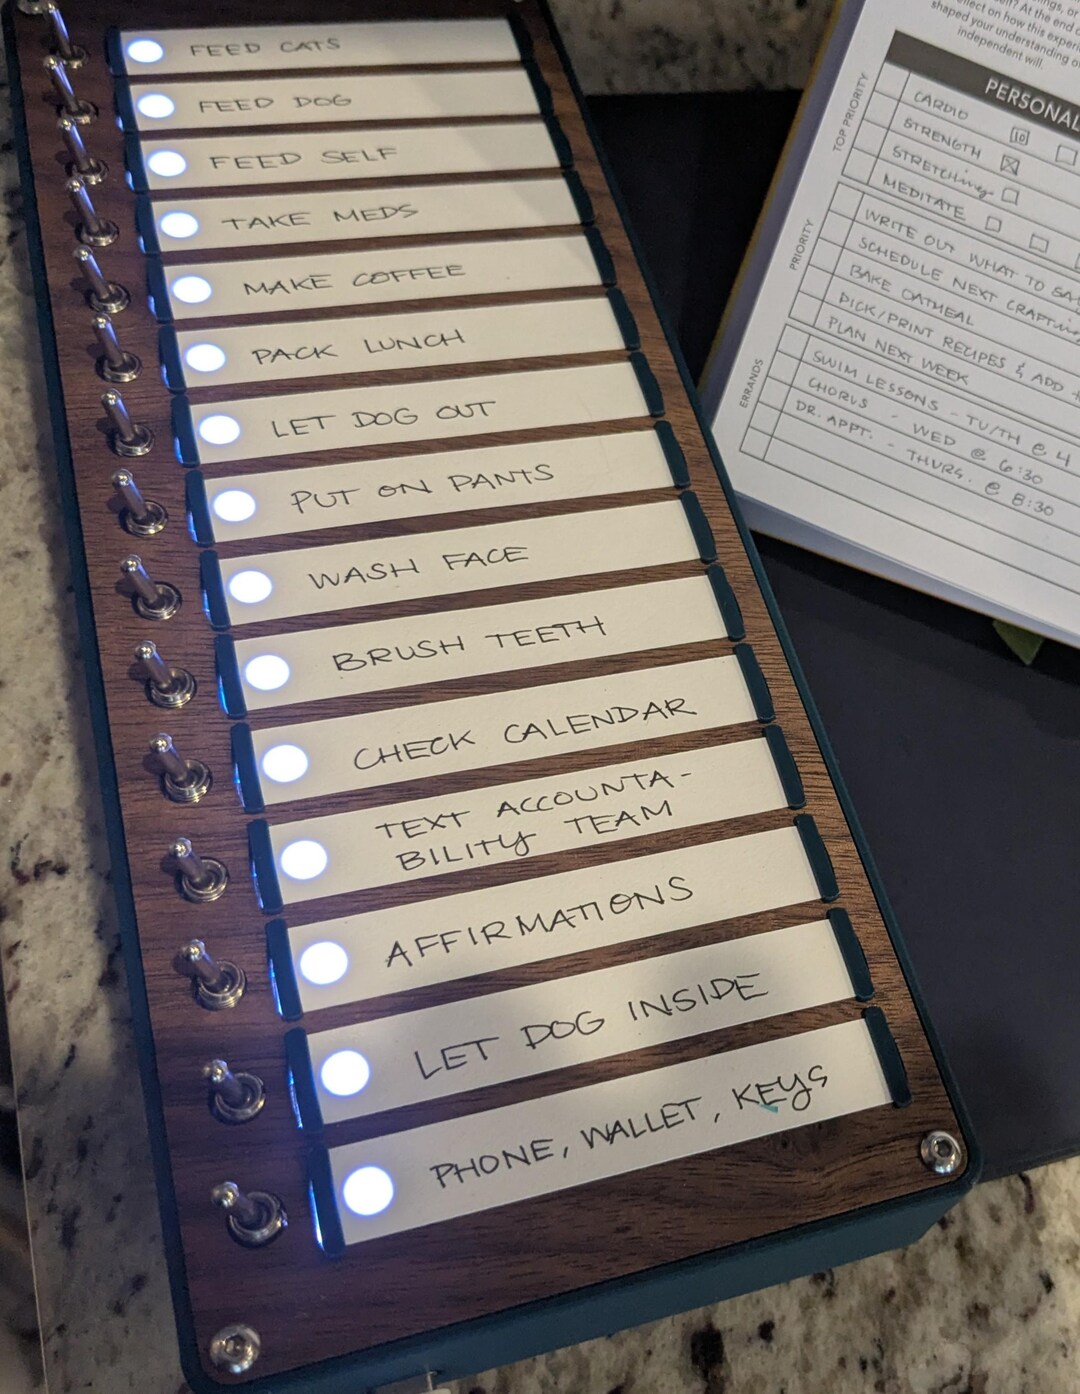 FEED CATS
FEED DOG
FEED SELF
TAKE MEDS
MAKE COFFEE
PACK LUNCH
LET DOG OUT
PUT ON PANTS
WASH FACE
BRUSH TEETH
CHECK CALENDAR
TEXT ACCOUNTA-
BILITY TEAM
AFFIRMATIONS
LET DOG INSIDE
PHONE, WALLET, KEYS
At the end
reflect on how this
shaped your understanding
independent will.
PERSONAL
TOP PRIORITY
CARDIO 10
STRENGTH
STRETCHING
MEDITATE
PRIORITY
WRITE OUT WHAT TO
SCHEDULE NEXT CRAFTING
BAKE OATMEAL
PICK/PRINT RECIPES & ADD
PLAN NEXT WEEK
ERRANDS
SWIM LESSONS - TU/TH @ 4
CHORUS - WED @ 6:30
DR. APPT. - THURS. @ 8:30